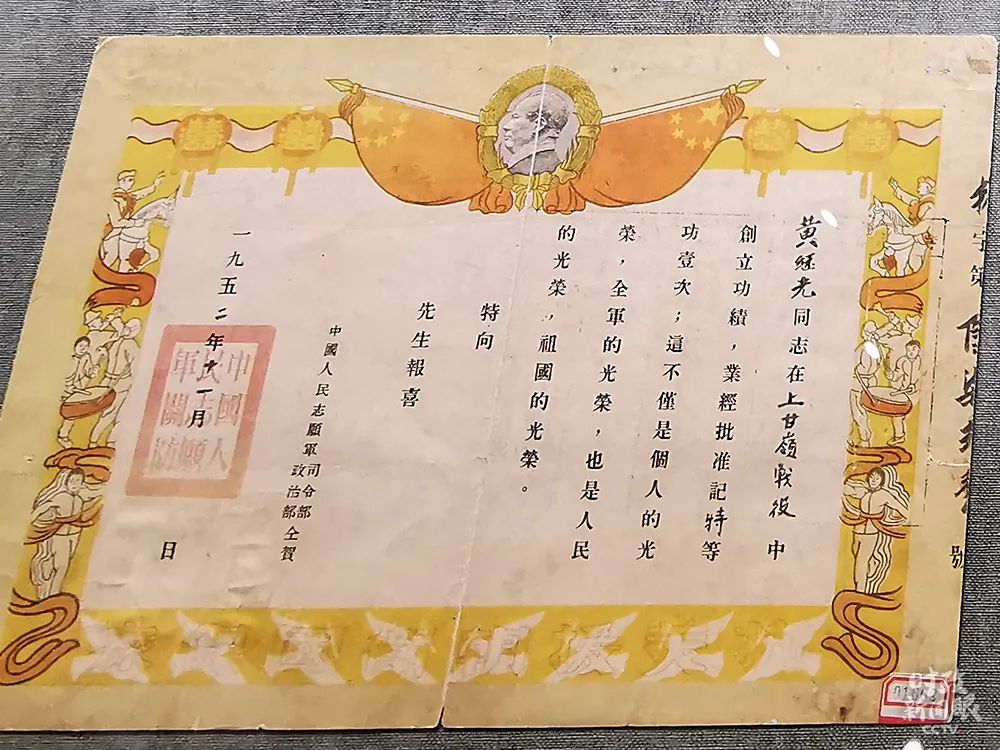 黄继光同志在上甘嶺戰役中
創立功績，業經批准記特等
功壹次；這不僅是個人的光
榮，全軍的光榮，也是人民
的光榮，祖國的光榮。
特向
先生報喜
中國人民志願軍司令部
政治部仝賀
一九五二年十一月 日
中國人
民志願
軍關防
字第
號
时政
新闻眼
CCTV